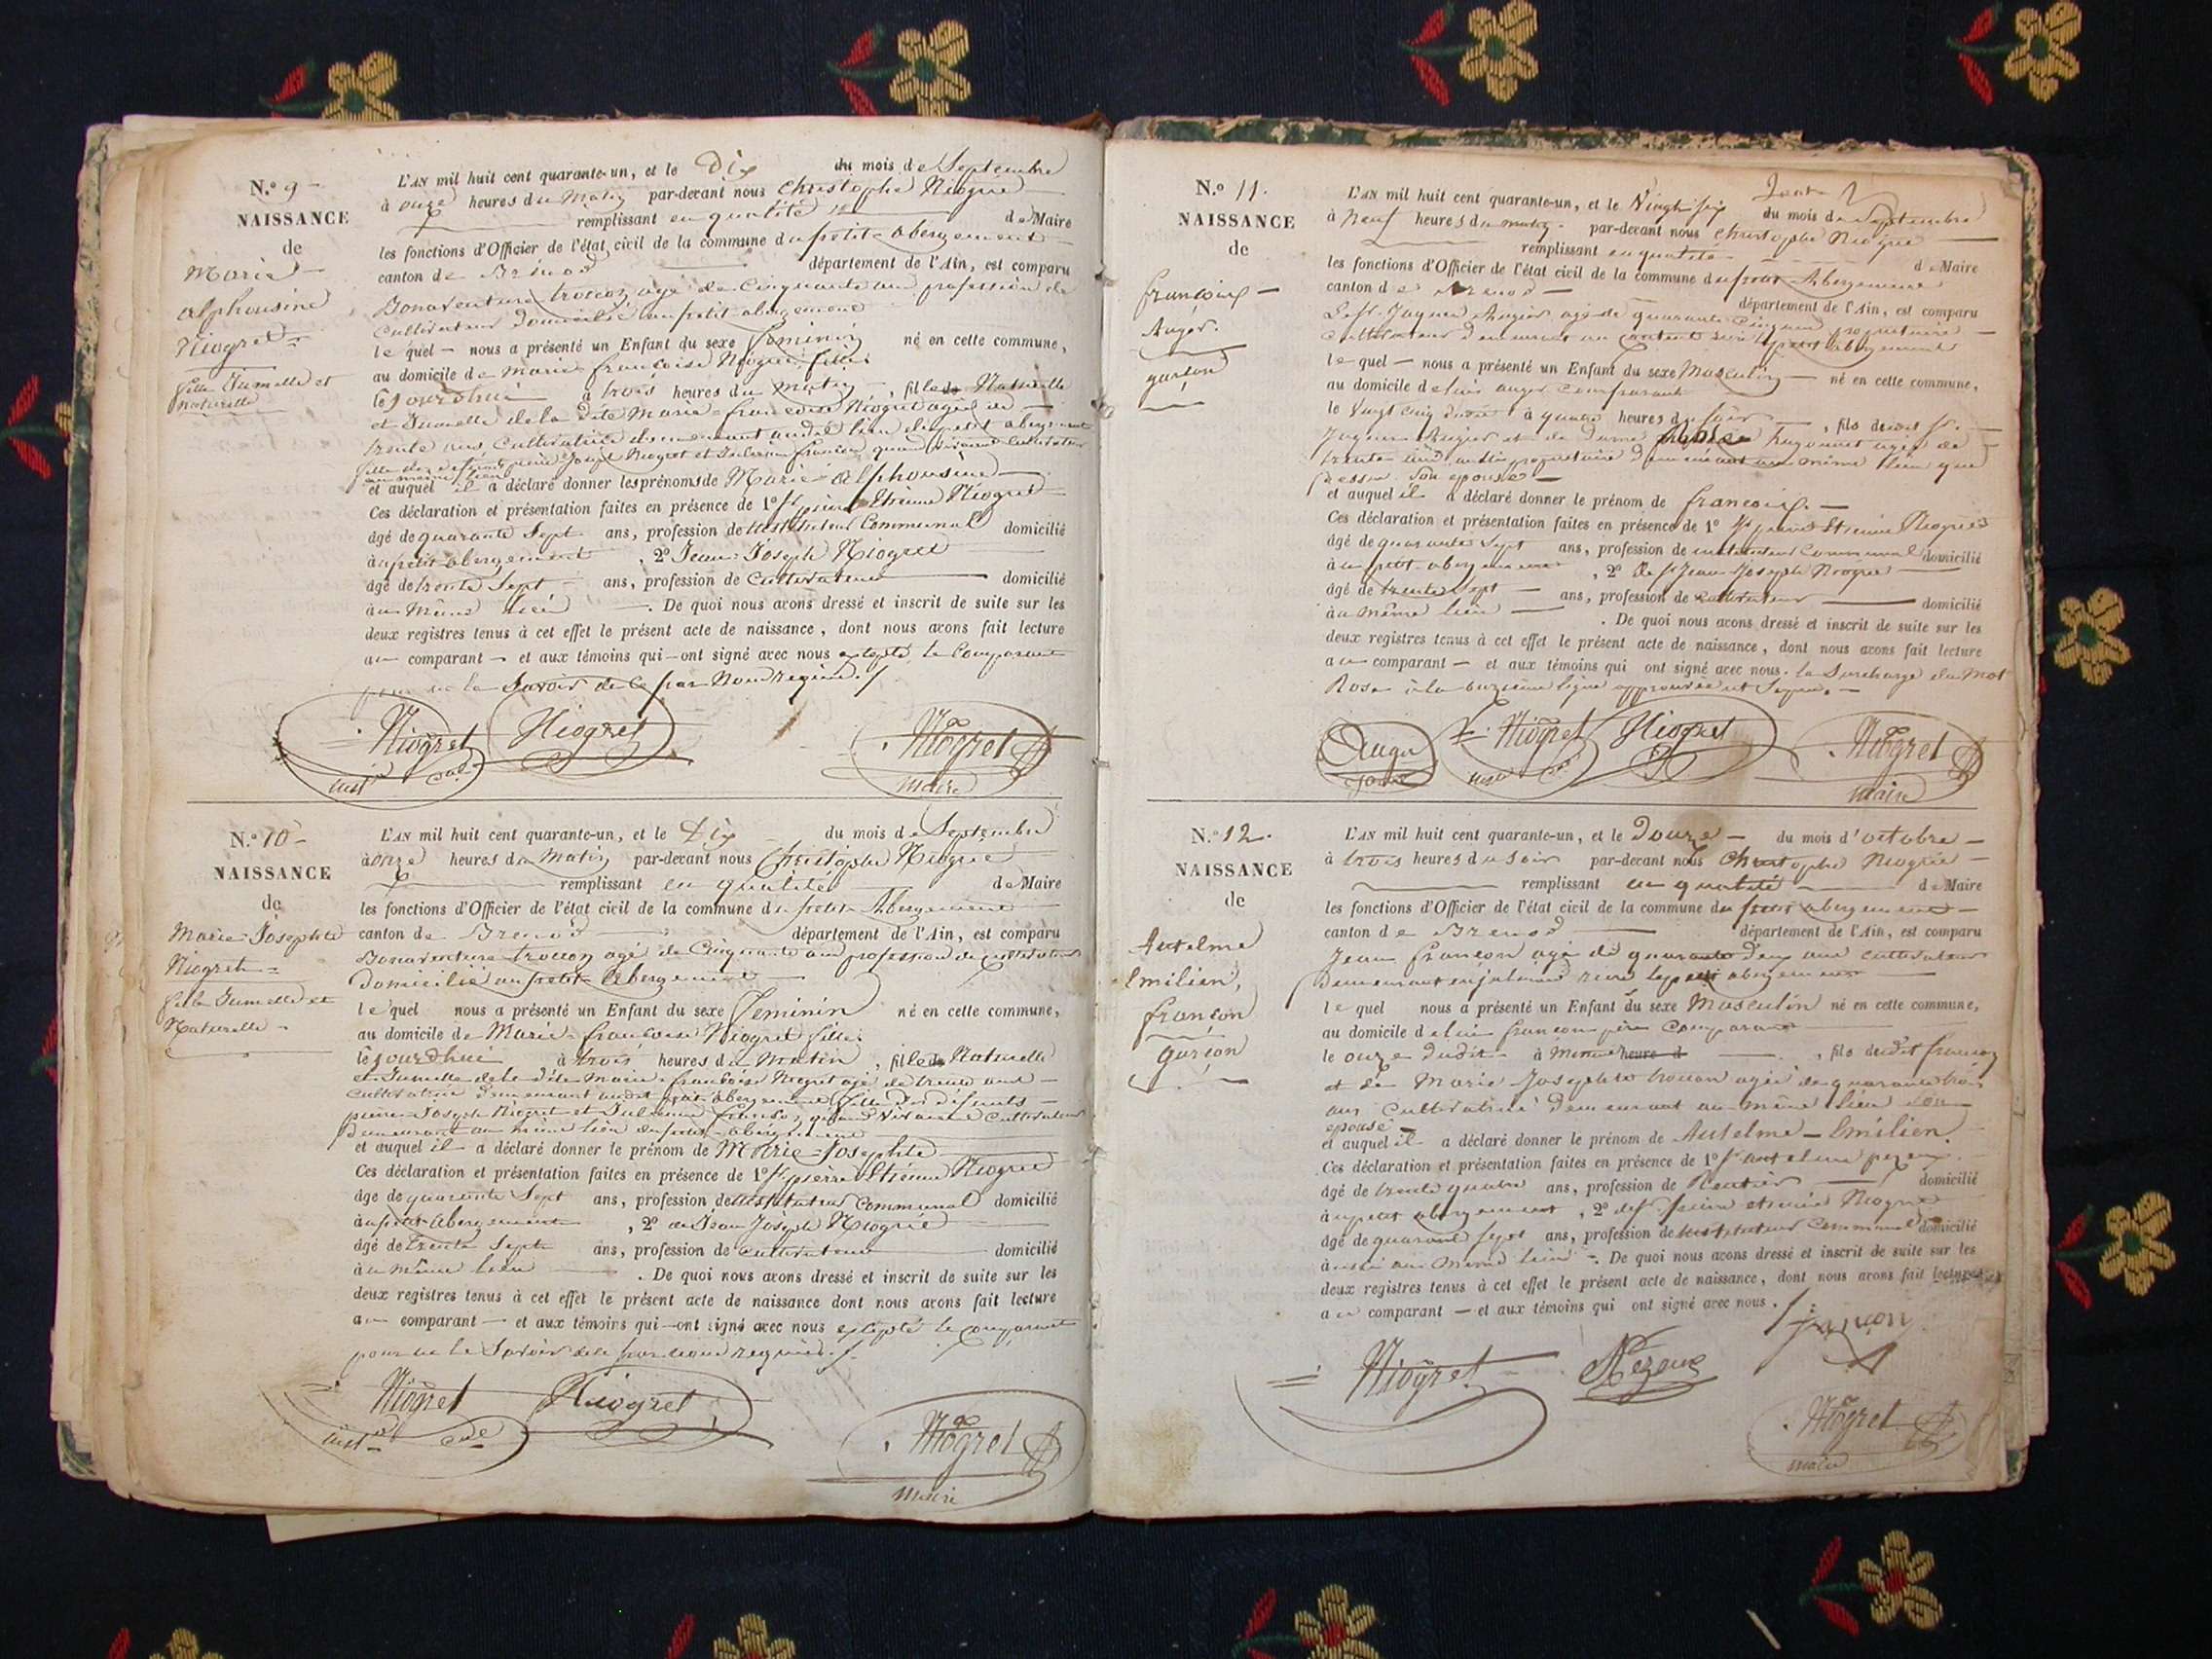 N.º 9 -
NAISSANCE
de
Marie
alphonsine
Niogret
fille Jumelle et
naturelle
L'AN mil huit cent quarante-un, et le Dix du mois de Septembre
à onze heures du Matin par-devant nous Christophe Niogret
remplissant en qualité de Maire
les fonctions d'Officier de l'état civil de la commune du petit abergement
canton de Brénod département de l'Ain, est comparu
Bonaventure trocon agé de Cinquante ans profession de
Cultivateur Domicilié au petit abergement
lequel nous a présenté un Enfant du sexe féminin né en cette commune,
au domicile de Marie françoise Niogret fille
le jourdhui à trois heures du matin, fille Naturelle
et Jumelle de la dite Marie françoise Niogret agée de
trente ans Cultivatrice demeurant audit lieu du petit abergement
fille des défunts pierre Joseph Niogret et Julienne françon quand vivaient Cultivateurs
au meme lieu
et auquel il a déclaré donner les prénoms de Marie Alphonsine
Ces déclaration et présentation faites en présence de 1º Sr pierre Etienne Niogret
âgé de quarante Sept ans, profession de instituteur Communal domicilié
à au petit abergement, 2º Jean Joseph Niogret
âgé de trente Sept ans, profession de Cultivateur domicilié
à au Même lieu. De quoi nous avons dressé et inscrit de suite sur les
deux registres tenus à cet effet le présent acte de naissance, dont nous avons fait lecture
au comparant et aux témoins qui ont signé avec nous excepté le Comparant
pour ne le Savoir de ce par Nous requis./.
Niogret Niogret Niogret
instr cal maire
N.º 10 -
NAISSANCE
de
Marie Josephte
Niogret
fille Jumelle et
Naturelle
L'AN mil huit cent quarante-un, et le Dix du mois de Septembre
à onze heures du Matin par-devant nous Christophe Niogret
remplissant en qualité de Maire
les fonctions d'Officier de l'état civil de la commune du petit Abergement
canton de Brénod département de l'Ain, est comparu
Bonaventure trocon agé de Cinquante ans profession de cultivateur
Domicilié au petit Abergement
lequel nous a présenté un Enfant du sexe Feminin né en cette commune,
au domicile de Marie françoise Niogret fille
le jourdhui à trois heures du Matin, fille Naturelle
et Jumelle de la dite Marie françoise Niogret agé de trente ans
cultivatrice demeurant audit petit abergement fille des défunts
pierre Joseph Niogret et Julienne françon quand vivaient Cultivateurs
Demeurant au même lieu du petit abergement
et auquel il a déclaré donner le prénom de Marie Josephte
Ces déclaration et présentation faites en présence de 1º Sr pierre Etienne Niogret
âgé de quarante Sept ans, profession de instituteur Communal domicilié
à au petit Abergement, 2º de Jean Joseph Niogret
âgé de trente Sept ans, profession de cultivateur domicilié
à au même lieu. De quoi nous avons dressé et inscrit de suite sur les
deux registres tenus à cet effet le présent acte de naissance dont nous avons fait lecture
au comparant et aux témoins qui ont signé avec nous excepté le comparant
pour ne le Savoir de ce par nous requis./.
Niogret Niogret Niogret
instr cal maire
N.º 11.
NAISSANCE
de
françois
Auger.
garçon
L'AN mil huit cent quarante-un, et le Vingt six du mois de Septembre
à Neuf heures du matin par-devant nous Christophe Niogret
remplissant en qualité de Maire
les fonctions d'Officier de l'état civil de la commune du petit Abergement
canton de Brénod département de l'Ain, est comparu
Le Sr Jaques Auger agé de quarante cinq ans propriétaire
cultivateur demeurant au petit abergement
lequel nous a présenté un Enfant du sexe Masculin né en cette commune,
au domicile de lui auger comparant
le Vingt cinq dudit à quatre heures du soir, fils dudit Sr.
Jaques Auger et de Dame Rose hugonnet agée de
trente ans propriétaire demeurant au même lieu que
dessus Son épouse
et auquel il a déclaré donner le prénom de françois.
Ces déclaration et présentation faites en présence de 1º Sr pierre Etienne Niogret
âgé de quarante Sept ans, profession de instituteur Communal domicilié
à au petit abergement, 2º de Sr Jean Joseph Niogret
âgé de trente Sept ans, profession de cultivateur domicilié
à au même lieu. De quoi nous avons dressé et inscrit de suite sur les
deux registres tenus à cet effet le présent acte de naissance, dont nous avons fait lecture
au comparant et aux témoins qui ont signé avec nous. la Surcharge du Mot
Rose à la onzième ligne approuvée
Auger Niogret Niogret Niogret
maire
N.º 12.
NAISSANCE
de
Antelme
Emilien,
françon
garçon
L'AN mil huit cent quarante-un, et le Douze du mois d'octobre
à trois heures du soir par-devant nous Christophe Niogret
remplissant en qualité de Maire
les fonctions d'Officier de l'état civil de la commune du petit abergement
canton de Brenod département de l'Ain, est comparu
Jean françon agé de quarante deux ans cultivateur
Demeurant abergement
lequel nous a présenté un Enfant du sexe Masculin né en cette commune,
au domicile de lui françon père Comparant
le onze dudit à Minuit heure d, fils dudit françon
et de Marie Josephte trocon agée de quarante trois
ans Cultivatrice demeurant au même lieu son
épouse
et auquel il a déclaré donner le prénom de Antelme - Emilien.
Ces déclaration et présentation faites en présence de 1º Sr antelme pezeux
âgé de trente quatre ans, profession de Rentier domicilié
à au petit abergement, 2º de Sr pierre etienne Niogret
âgé de quarante sept ans, profession de instituteur communal domicilié
à aussi au Même lieu. De quoi nous avons dressé et inscrit de suite sur les
deux registres tenus à cet effet le présent acte de naissance, dont nous avons fait lecture
au comparant et aux témoins qui ont signé avec nous.
françon
Niogret Pezeux
Niogret
maire